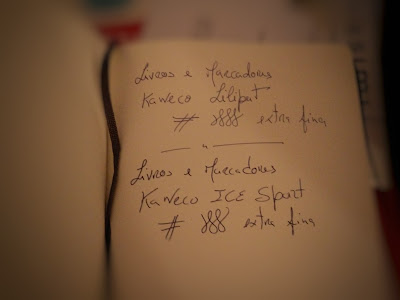 Livros e Marcadores
Kaweco Liliput
# extra fina
Livros e Marcadores
Kaweco ICE Sport
# extra fina